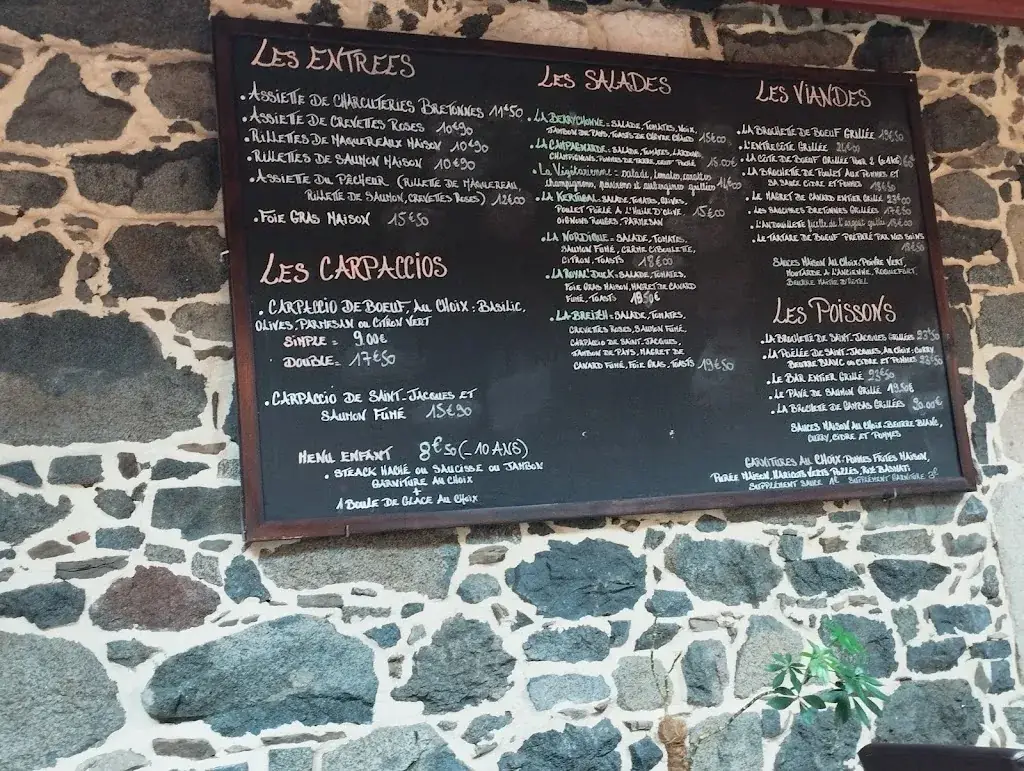 LES ENTREES
• ASSIETTE DE CHARCUTERIES BRETONNES 11€50
• ASSIETTE DE CREVETTES ROSES 10€90
• RILLETTES DE MAQUEREAUX MAISON 10€90
• RILLETTES DE SAUMON MAISON 10€90
• ASSIETTE DU PÊCHEUR (RILLETTE DE MAQUEREAU
RILLETTE DE SAUMON, CREVETTES ROSES) 12€00
• FOIE GRAS MAISON 15€50
LES CARPACCIOS
• CARPACCIO DE BOEUF, AU CHOIX : BASILIC,
OLIVES, PARMESAN OU CITRON VERT
SIMPLE = 9.00€
DOUBLE = 17€50
• CARPACCIO DE SAINT-JACQUES ET
SAUMON FUMÉ 15€90
MENU ENFANT 8€50 (-10 ANS)
• STEACK HACHÉ OU SAUCISSE OU JAMBON
GARNITURE AU CHOIX
+
1 BOULE DE GLACE AU CHOIX
LES SALADES
• LA BERRYCHONNE = SALADE, TOMATES, NOIX,
JAMBON DE PAYS, TOASTS DE CHÈVRE CHAUD 15€00
• LA CAMPAGNARDE : SALADE, TOMATES, LARDONS
CHAMPIGNONS, POMMES DE TERRE, OEUF POCHÉ 15.00€
• La Végétarienne = salade, tomates, carottes
champignons, poivrons et aubergines grillées 14€00
• LA KERJUBAL = SALADE, TOMATES, OLIVES,
POULET POÊLÉ À L'HUILE D'OLIVE 15€00
OIGNONS ROUGES, PARMESAN
• LA NORDIQUE = SALADE, TOMATES,
SAUMON FUMÉ, CRÈME CIBOULETTE,
CITRON, TOASTS 18€00
• LA ROYAL DUCK = SALADE, TOMATES,
FOIE GRAS MAISON, MAGRET DE CANARD
FUMÉ, TOASTS 18.50€
• LA BREIZH = SALADE, TOMATES,
CREVETTES ROSES, SAUMON FUMÉ,
CARPACCIO DE SAINT-JACQUES,
JAMBON DE PAYS, MAGRET DE
CANARD FUMÉ, FOIE GRAS, TOASTS 19€50
LES VIANDES
• LA BROCHETTE DE BOEUF GRILLÉE 19€50
• L'ENTRECÔTE GRILLÉE
• LA CÔTE DE BOEUF GRILLÉE POUR 2
• LA BROCHETTE DE POULET AUX POMMES ET
SA SAUCE CIDRE ET POMMES 18€50
• LE MAGRET DE CANARD ENTIER GRILLÉ 23€00
• LES SAUCISSES BRETONNES GRILLÉES 17€50
• L'ANDOUILLETTE ficelle de l'argoat grillée
• LE TARTARE DE BOEUF PRÉPARÉ PAR NOS SOINS
18€50
SAUCES MAISON AU CHOIX : POIVRE VERT,
MOUTARDE À L'ANCIENNE, ROQUEFORT,
BEURRE MAÎTRE D'HÔTEL
LES POISSONS
• LA BROCHETTE DE SAINT-JACQUES GRILLÉES 23€50
• LA POÊLÉE DE SAINT-JACQUES, AU CHOIX : CURRY
BEURRE BLANC OU CIDRE ET POMMES 23€50
• LE BAR ENTIER GRILLÉ 23€50
• LE PAVÉ DE SAUMON GRILLÉ 19.50€
• LA BROCHETTE DE GAMBAS GRILLÉES 20.00€
SAUCES MAISON AU CHOIX : BEURRE BLANC,
CURRY, CIDRE ET POMMES
GARNITURES AU CHOIX : POMMES FRITES MAISON,
PURÉE MAISON, HARICOTS VERTS POÊLÉS, RIZ BASMATI
SUPPLÉMENT SAUCE 1€ SUPPLÉMENT GARNITURE